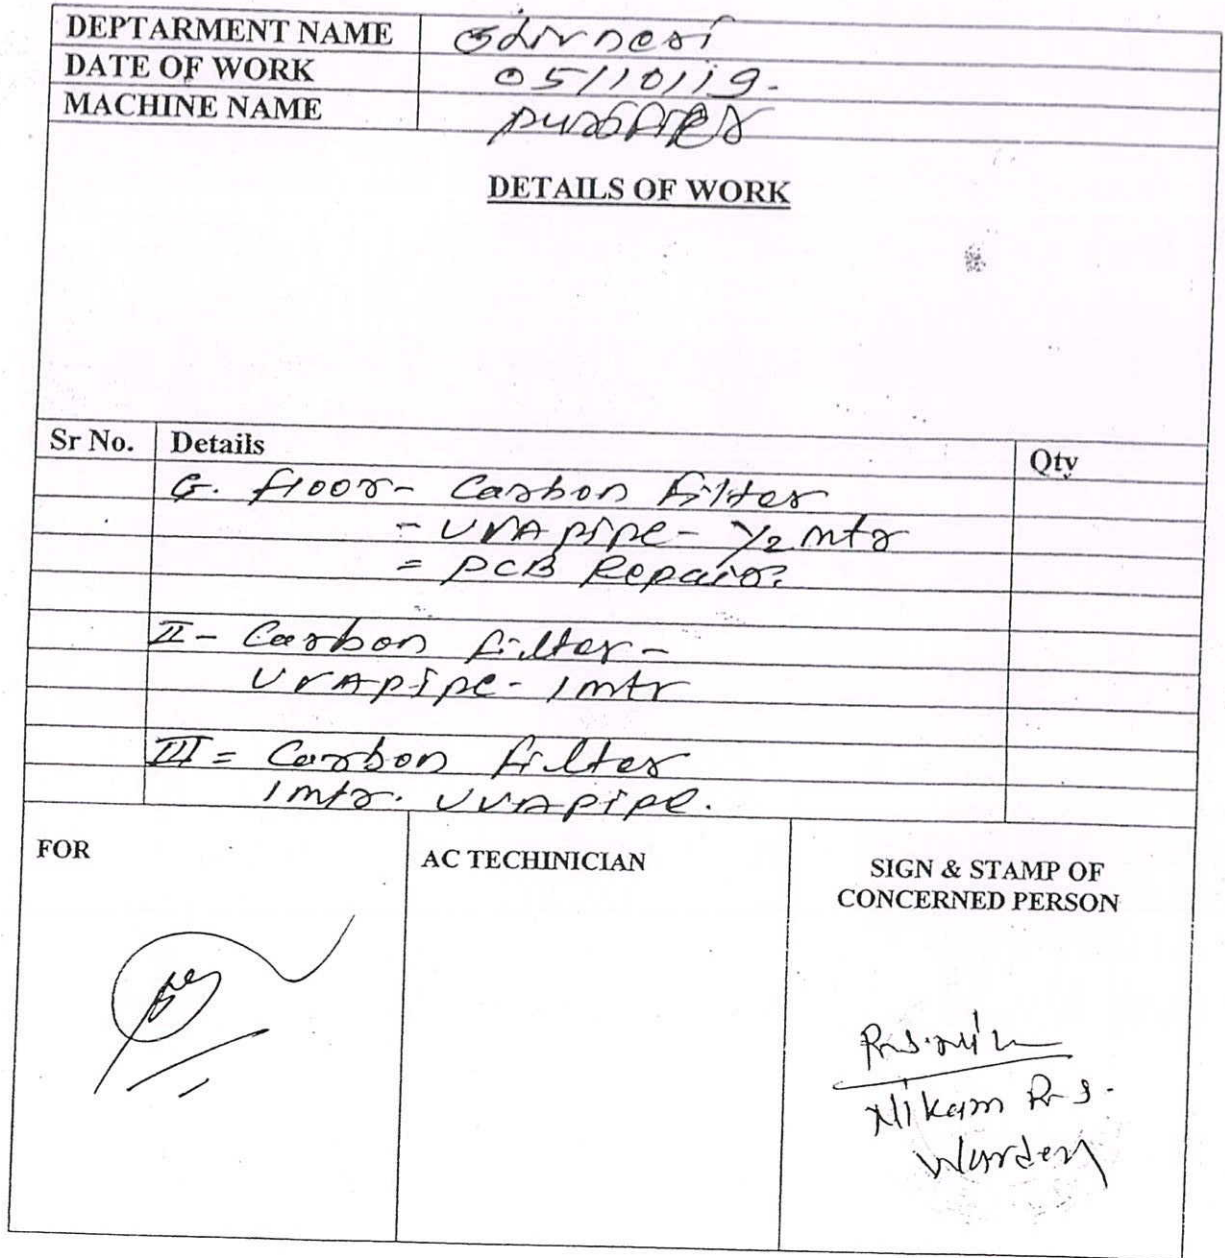 DEPTARMENT NAME
DATE OF WORK 05/10/19.
MACHINE NAME
DETAILS OF WORK
Sr No. Details Qty
G. floor - Carbon Filter
- UVA pipe - 1/2 mtr
= PCB Repair.
II - Carbon filter -
UVA pipe - 1 mtr
III = Carbon filter
1 mtr. UVA pipe.
FOR
AC TECHINICIAN
SIGN & STAMP OF
CONCERNED PERSON
Nikam R. S.
Warden